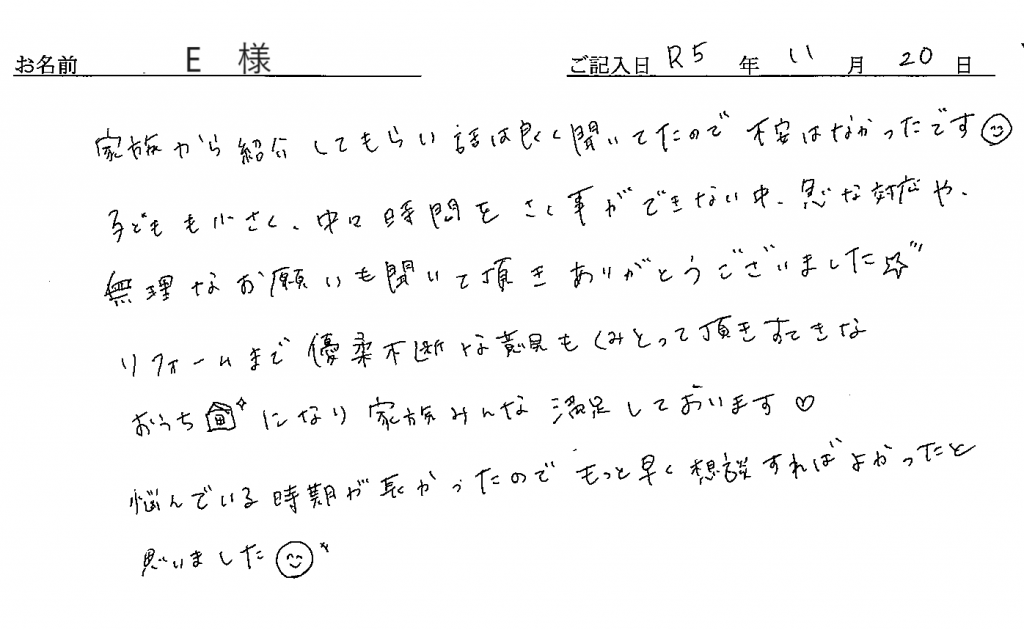 お名前 E 様 ご記入日 R5 年 11 月 20 日
家族から紹介してもらい話は良く聞いてたので 不安はなかったです
子どもも小さく、中々時間をさく事ができない中、急な対応や、
無理なお願いも聞いて頂きありがとうございました☆
リフォームまで優柔不断な意見もくみとって頂きすてきな
おうちになり家族みんな満足しておいます♡
悩んでいる時期が長かったのでもっと早く想談すればよかったと
思いました